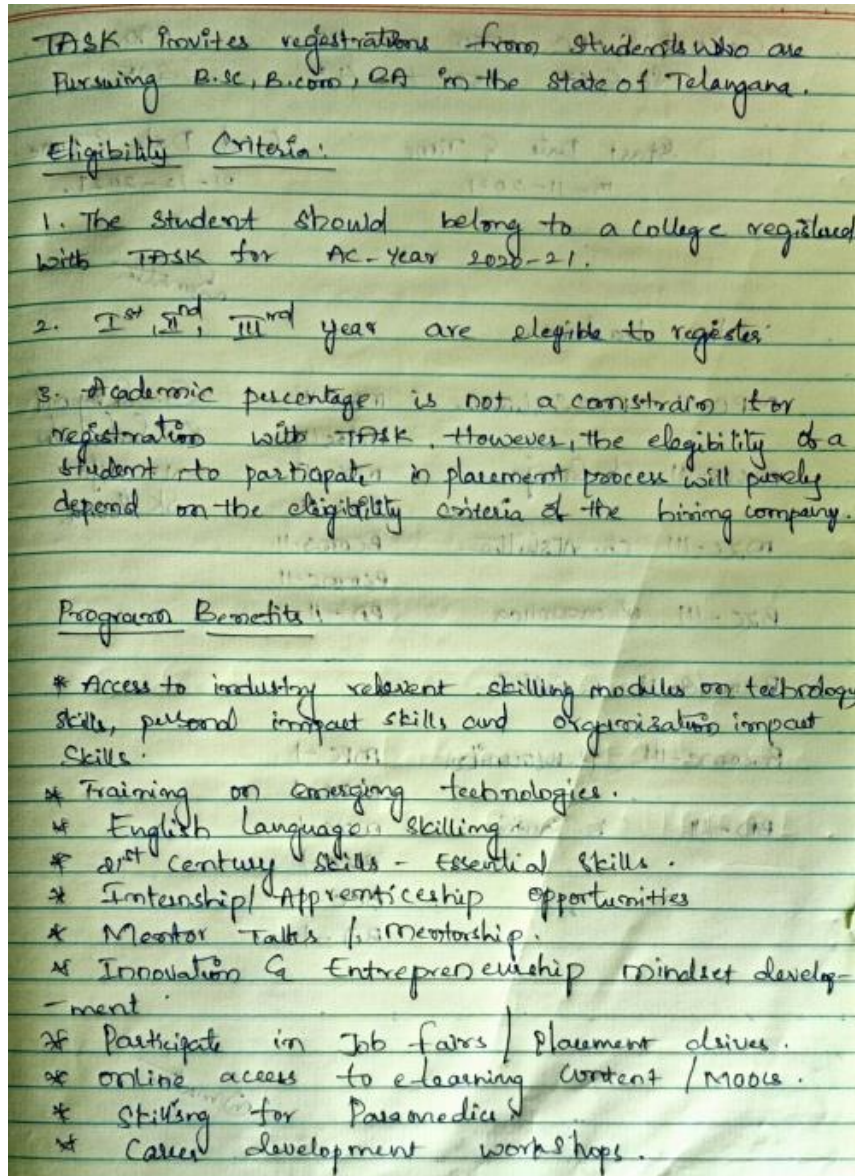 TASK invites registrations from students who are
Pursuing B.sc, B.com, BA in the state of Telangana.
Eligibility Criteria:
1. The student should belong to a college registered
with TASK for AC-Year 2020-21.
2. Ist, IInd, IIIrd year are elegible to register
3. Academic percentage is not a constrain for
registration with TASK. However, the elegibility of a
student to participate in placement process will purely
depend on the eligibility criteria of the hiring company.
Program Benefits:
* Access to industry relevent skilling modules on technology
skills, personal impact skills and organization impact
Skills.
* Training on emerging technologies.
* English Language skilling
* 21st century skills - Essential skills.
* Internship/Apprenticeship opportunities
* Mentor Talks / mentorship.
* Innovation & Entrepreneurship mindset develop-
-ment
* Participate in Job fairs / placement drives.
* online access to e-learning content / MOOCs.
* Skilling for Paramedics
* Career development workshops.